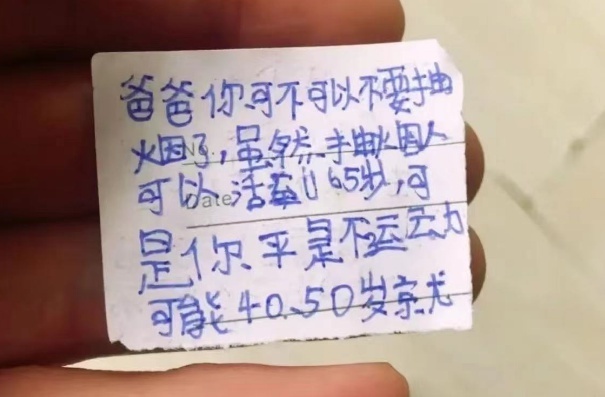 爸爸你可不可以不要抽
烟了,虽然抽烟人
可以活到65岁,可
是你平是不运动
可能40.50岁京尤
No.
Date